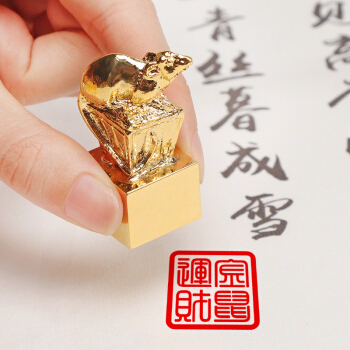 高
青丝暮成雪
鼠
運財